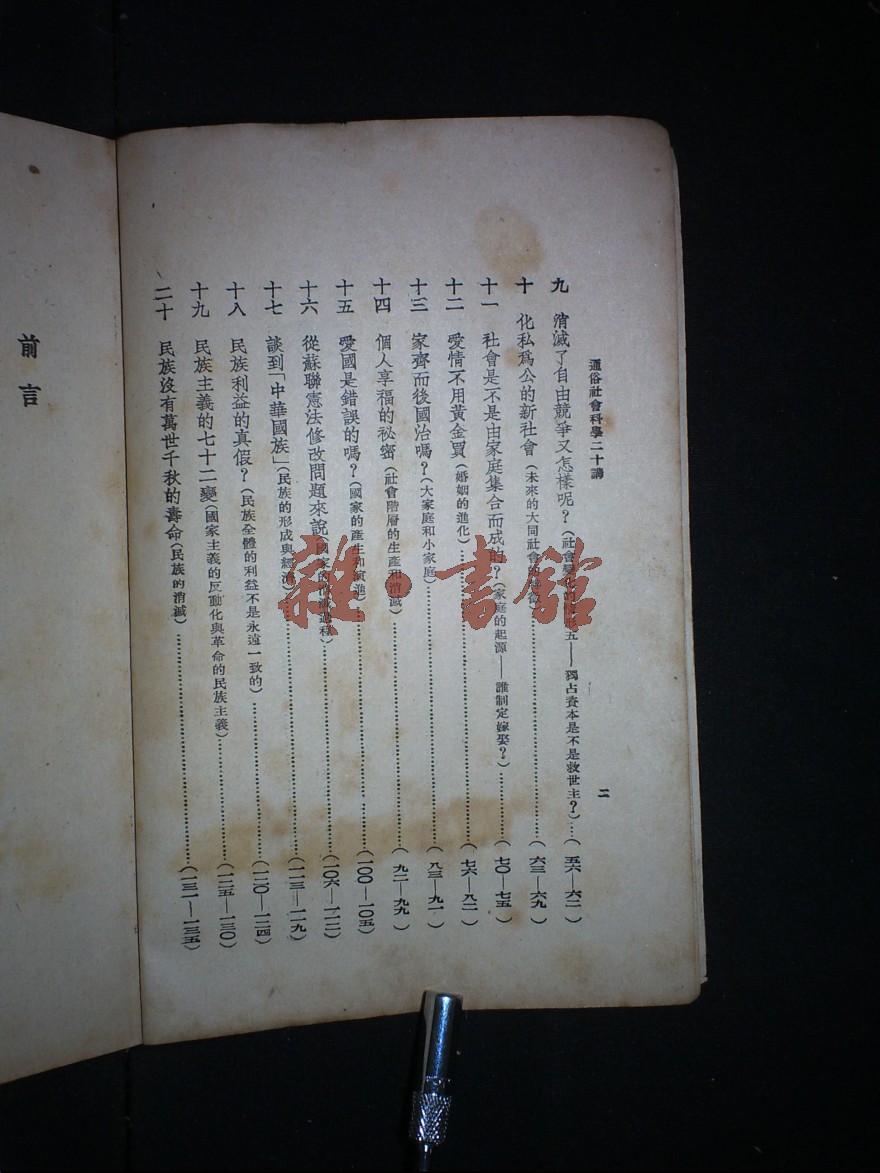 通俗社會科學二十講
二
九 消滅了自由競爭又怎樣呢？（社會變化的 五——獨占資本是不是救世主？）…（五六—六二）
十 化私爲公的新社會（未來的大同社會的 ）……（六三—六九）
十一 社會是不是由家庭集合而成的？（家庭的起源——誰制定嫁娶？）……（七〇—七五）
十二 愛情不用黃金買（婚姻的進化）……（七六—八二）
十三 家齊而後國治嗎？（大家庭和小家庭）……（八三—九一）
十四 個人享福的祕密（社會階層的生產和消滅）……（九二—九九）
十五 愛國是錯誤的嗎？（國家的產生和演進）……（一〇〇—一〇五）
十六 從蘇聯憲法修改問題來說（國家的消滅過程）……（一〇六—一一二）
十七 談到「中華國族」（民族的形成與經濟）……（一一三—一一九）
十八 民族利益的真假？（民族全體的利益不是永遠一致的）……（一二〇—一二四）
十九 民族主義的七十二變（國家主義的反動化與革命的民族主義）……（一二五—一三〇）
二十 民族沒有萬世千秋的壽命（民族的消滅）……（一三一—一三五）
前言
雜·書館